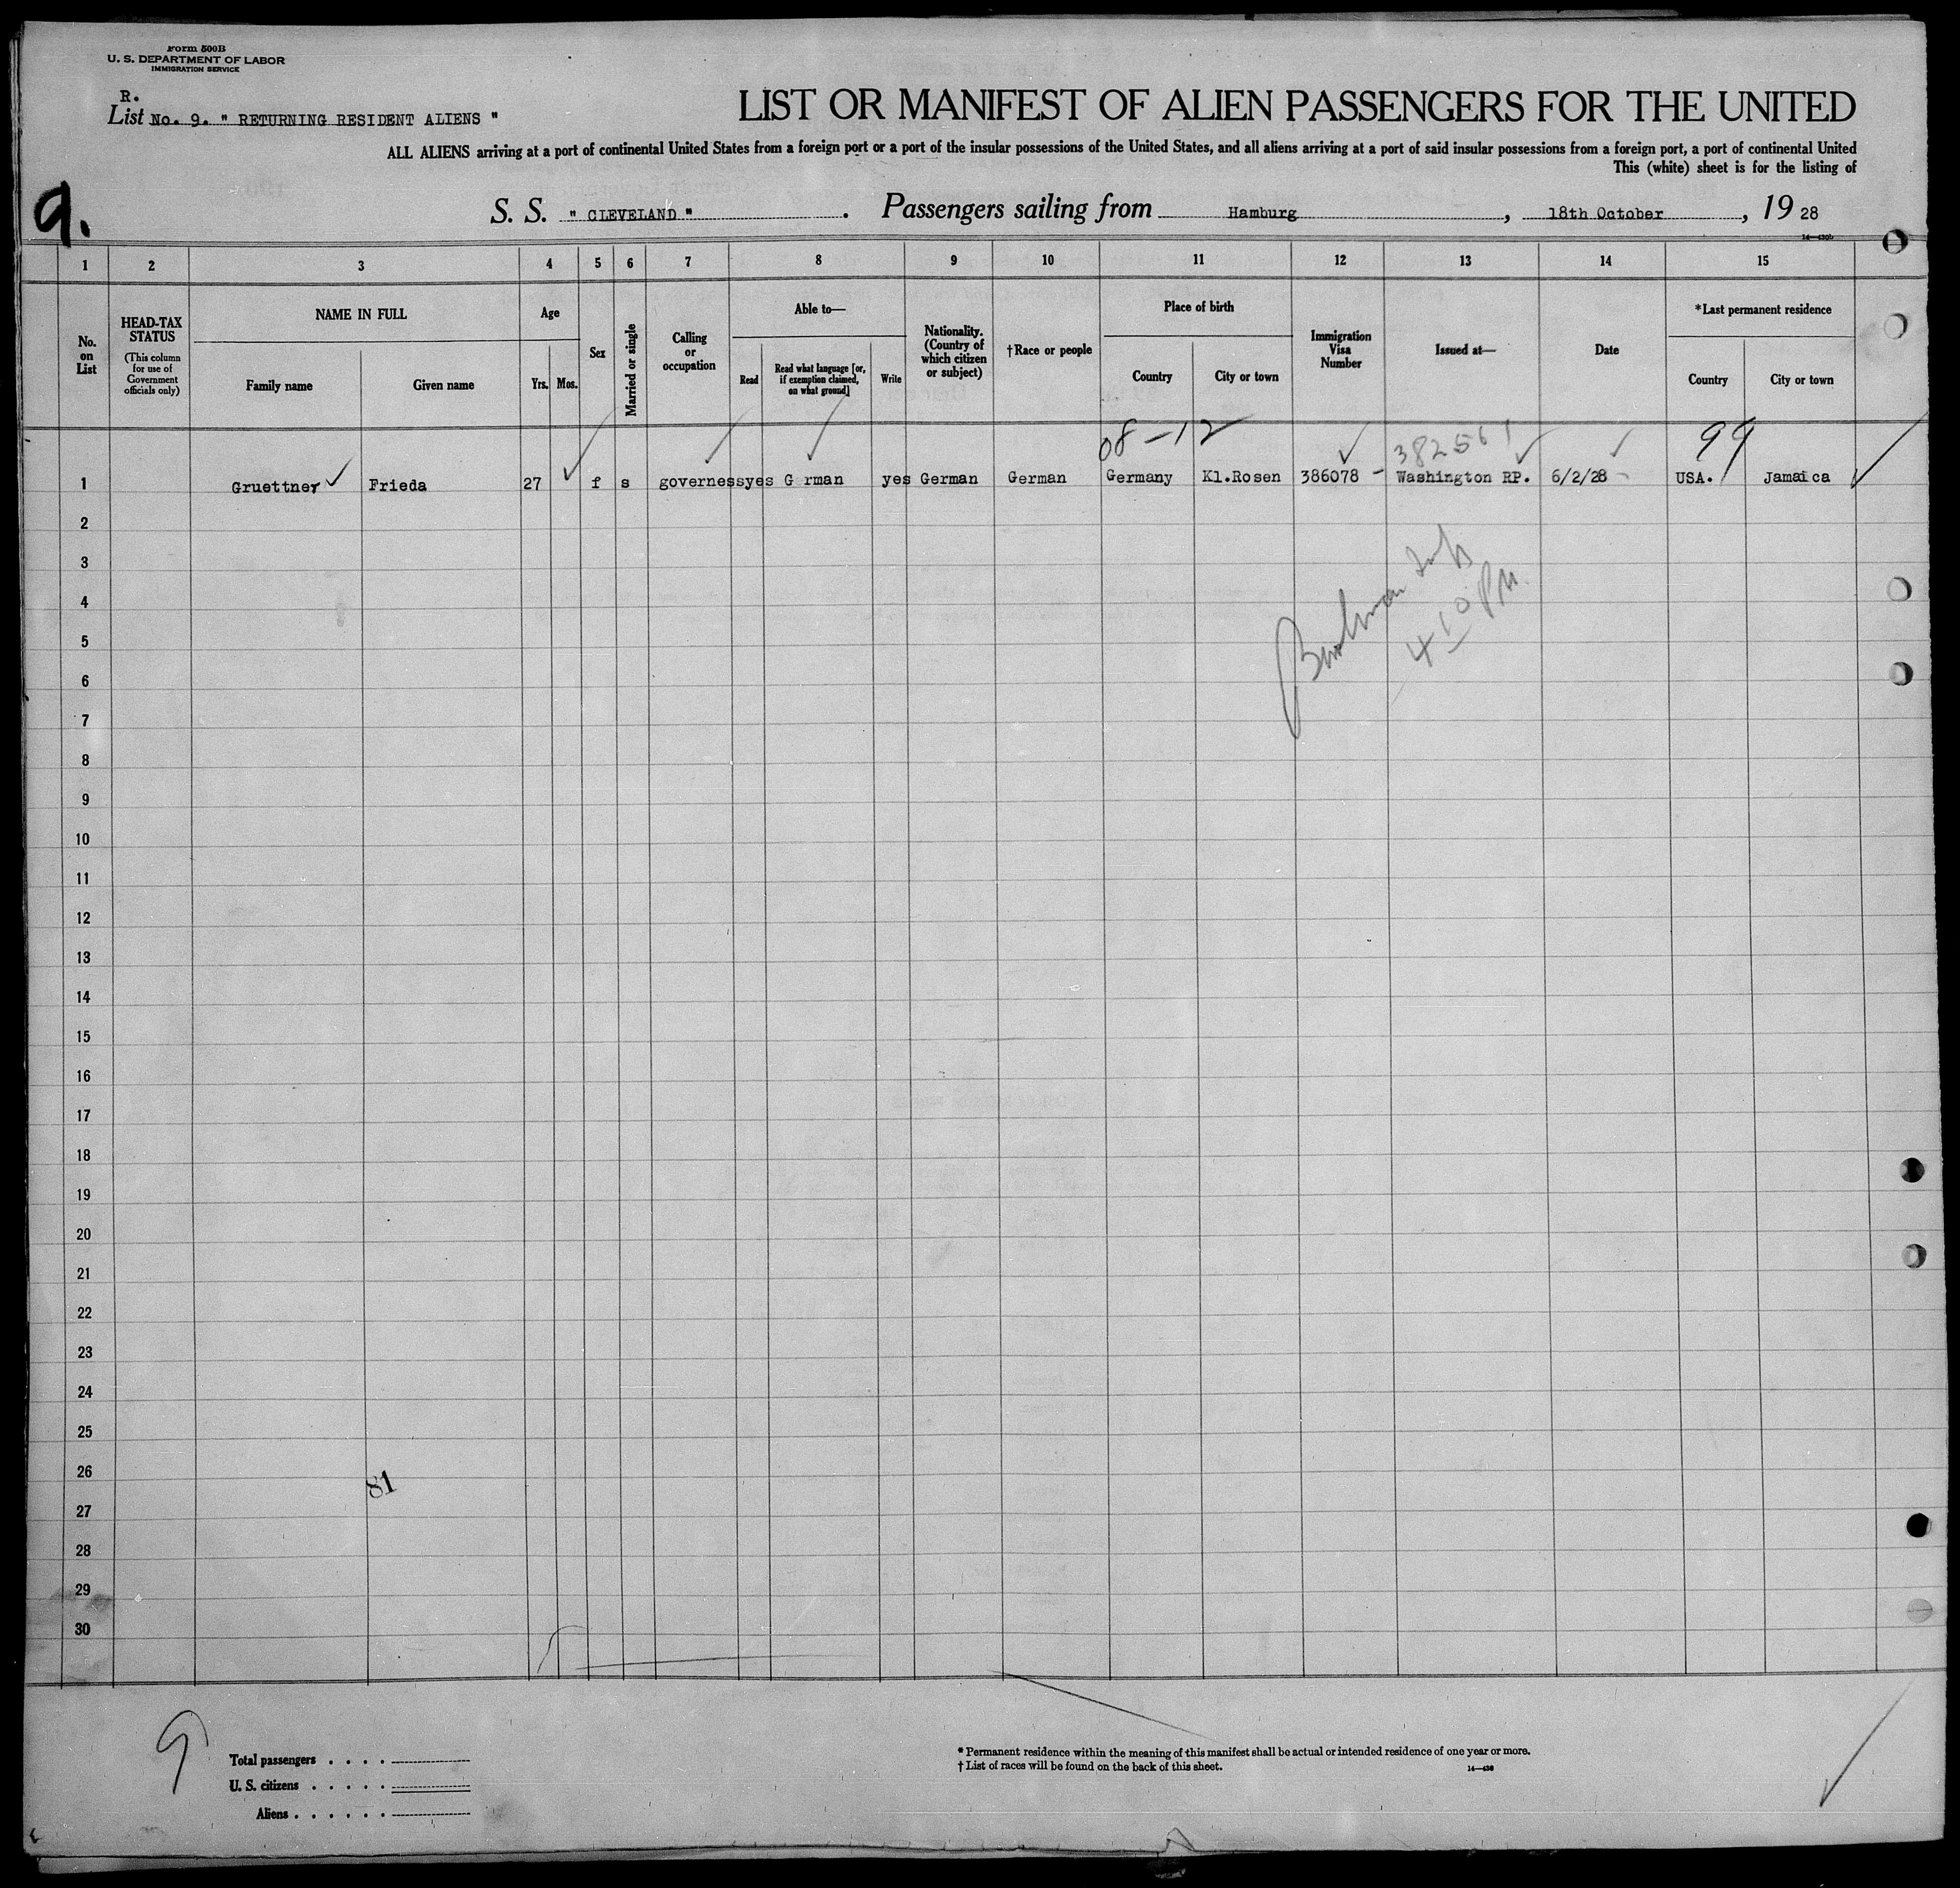 Form 500B
U. S. DEPARTMENT OF LABOR
IMMIGRATION SERVICE
R.
List No. 9. " RETURNING RESIDENT ALIENS "
LIST OR MANIFEST OF ALIEN PASSENGERS FOR THE UNITED
ALL ALIENS arriving at a port of continental United States from a foreign port or a port of the insular possessions of the United States, and all aliens arriving at a port of said insular possessions from a foreign port, a port of continental United
This (white) sheet is for the listing of
9.
S. S. " CLEVELAND " . Passengers sailing from Hamburg , 18th October , 19 28
14—430b
1 2 3 4 5 6 7 8 9 10 11 12 13 14 15
No. on List
HEAD-TAX STATUS
(This column for use of Government officials only)
NAME IN FULL
Family name
Given name
Age
Yrs. Mos.
Sex
Married or single
Calling or occupation
Able to—
Read
Read what language [or, if exemption claimed, on what ground]
Write
Nationality. (Country of which citizen or subject)
†Race or people
Place of birth
Country
City or town
Immigration Visa Number
Issued at—
Date
*Last permanent residence
Country
City or town
08-12 382561 99
1 Gruettner Frieda 27 f s governess yes G rman yes German German Germany Kl.Rosen 386078 - Washington RP. 6/2/28 - USA. Jamaica
2
3
4
4 10 PM.
5
6
7
8
9
10
11
12
13
14
15
16
17
18
19
20
21
22
23
24
25
26
81
27
28
29
30
9
Total passengers . . . .
U. S. citizens . . . . .
Aliens . . . . . .
* Permanent residence within the meaning of this manifest shall be actual or intended residence of one year or more.
† List of races will be found on the back of this sheet.
14—430